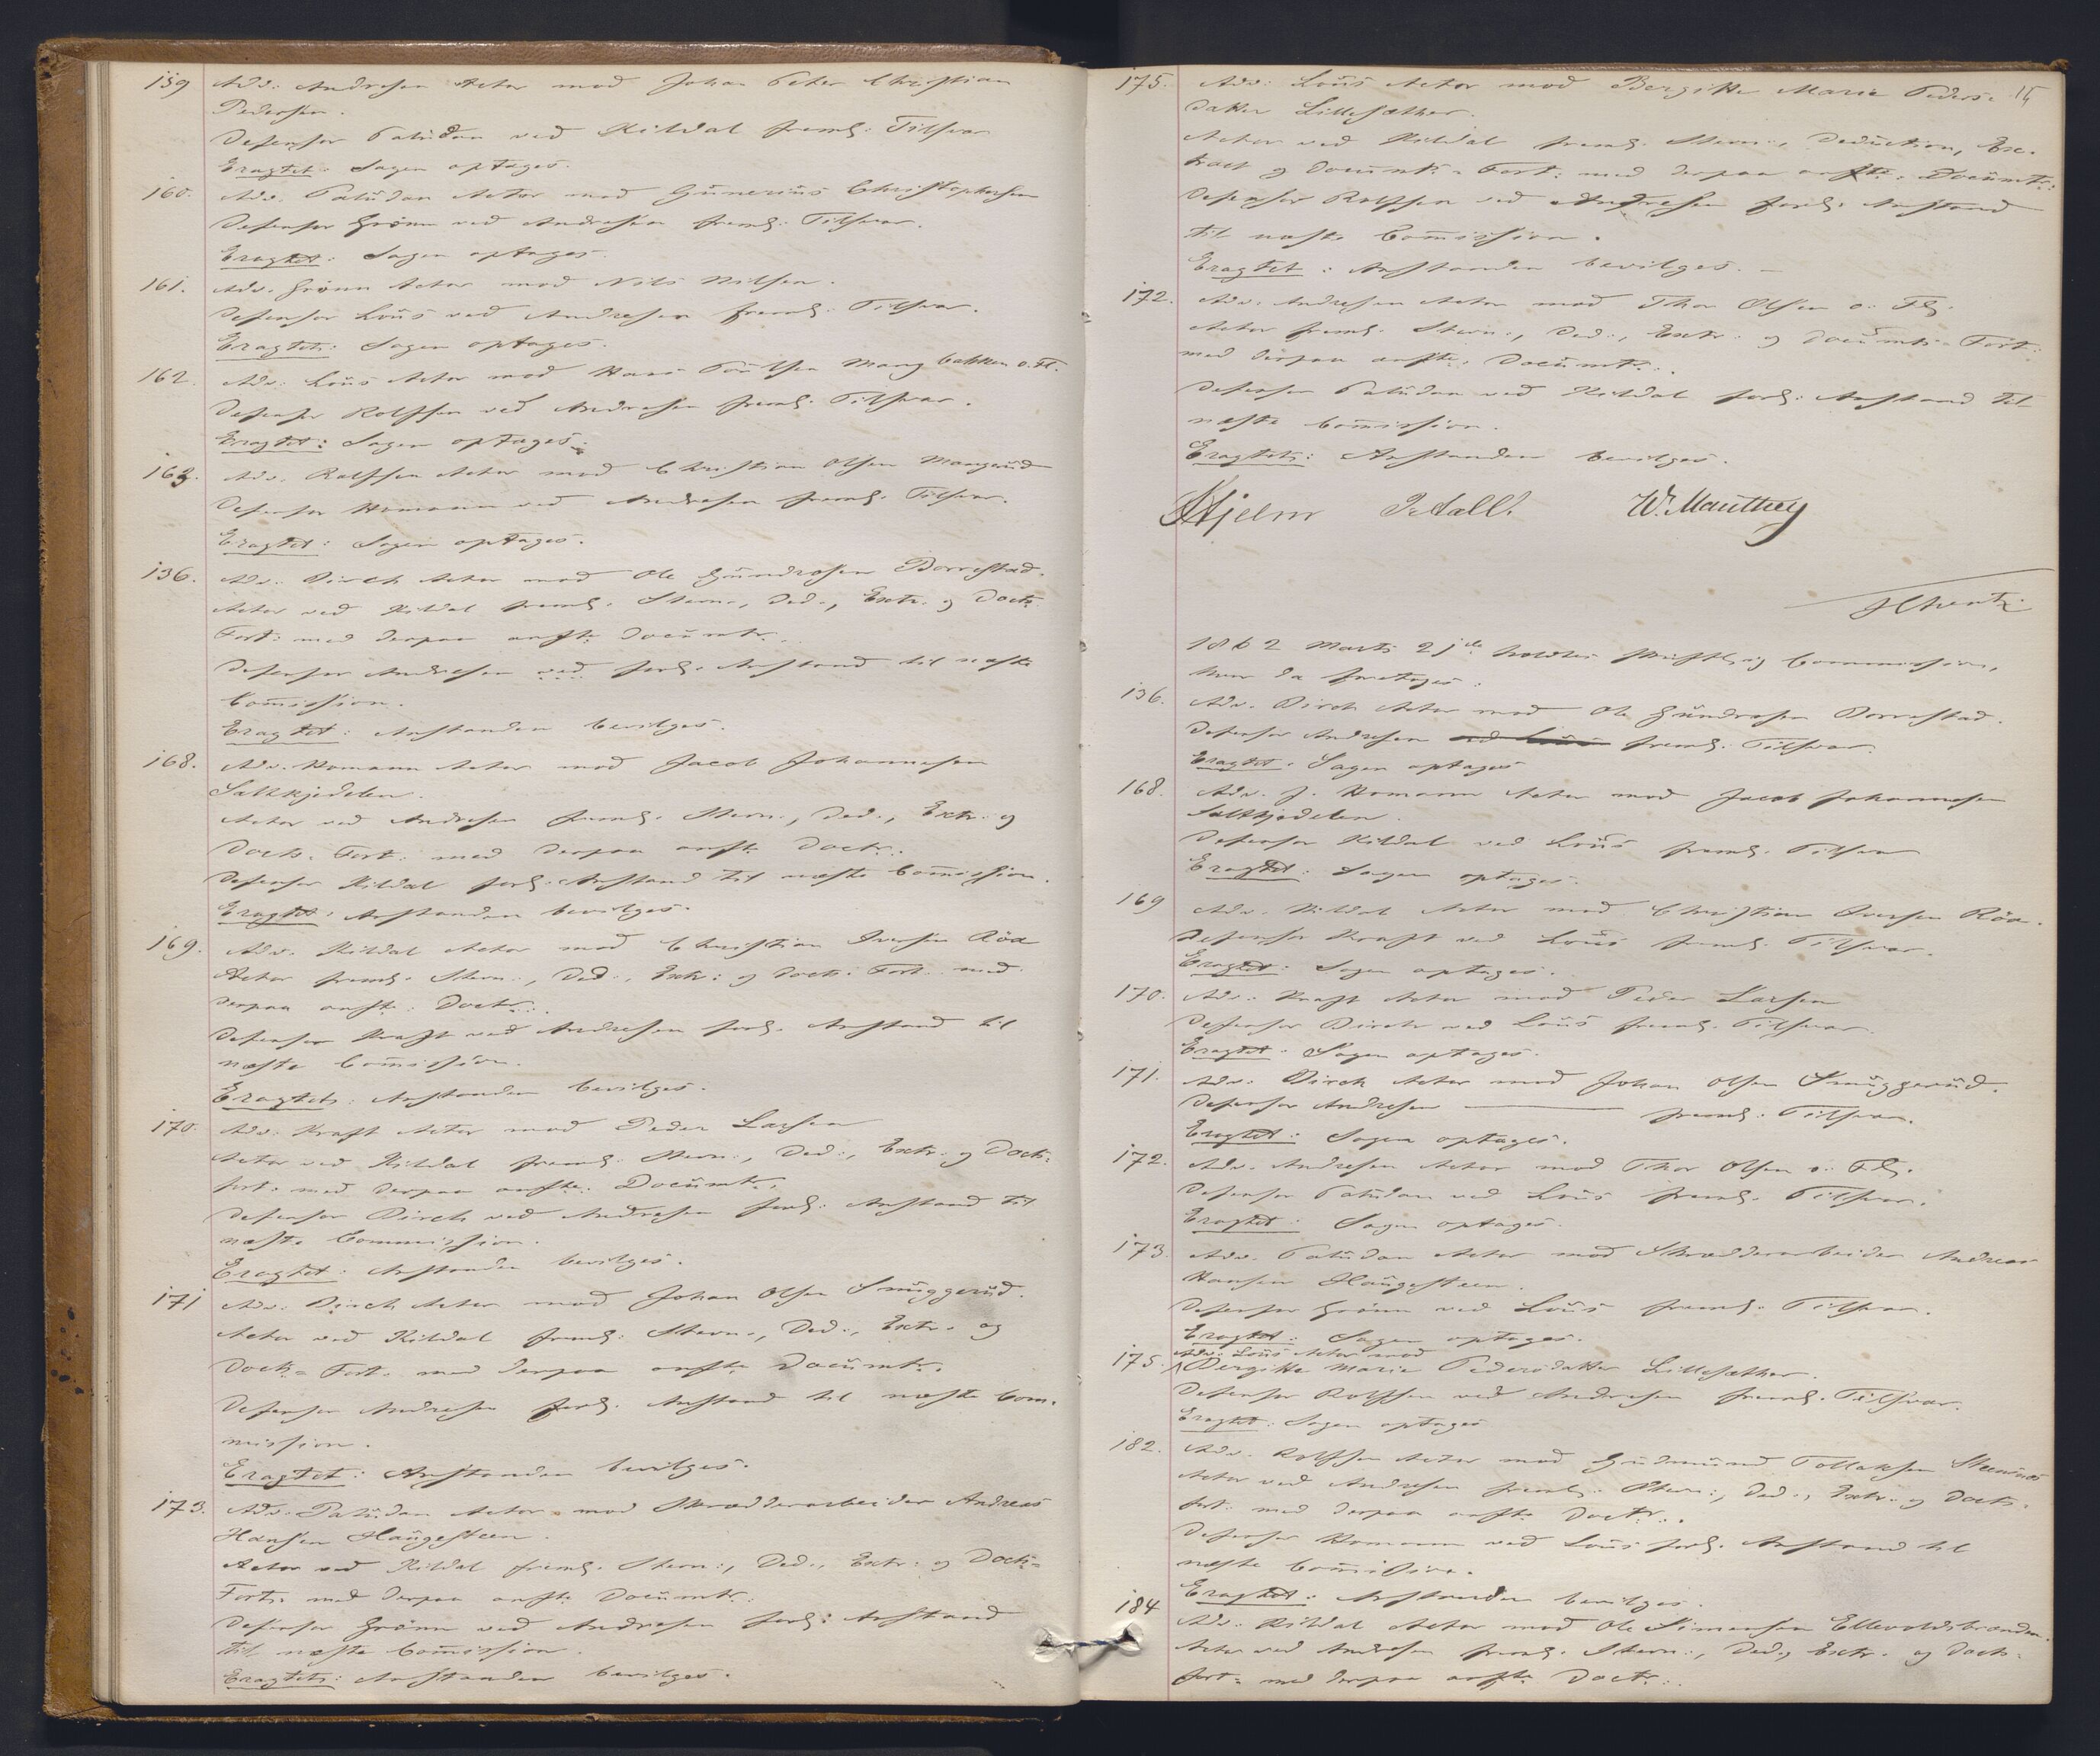 159 Adv: Andresen Actor mod Johan Peter Christian
Pedersen.
Defensor Paludan ved Kildal freml: Tilsvar
Eragtet: Sagen optages.
160. Adv. Paludan Actor mod Gunerius Christophersen
Defensor Grönn ved Andresen freml: Tilsvar.
Eragtet: Sagen optages.
161. Adv. Grönn Actor mod Nils Nilsen.
Defensor Lous ved Andresen freml: Tilsvar.
Eragtet: Sagen optages.
162. Adv: Lous Actor mod Hans Poulsen Mangbakken o. Fl.
Defensor Rolfsen ved Andresen freml. Tilsvar.
Eragtet: Sagen optages.
163. Adv. Rolfsen Actor mod Christian Olsen Mangrud
Defensor Homann ved Andresen freml. Tilsvar.
Eragtet: Sagen optages.
136. Adv. Birch Actor mod Ole Gundrosen Borrestad.
Actor ved Kildal freml. Stevn., Ded., Extr. og Docts
Fort: med derpaa anfte Documtr.
Defensor Andresen ved forl. Anstand til næste
Comission.
Eragtet: Anstanden bevilges.
168. Adv. Homann Actor mod Jacob Johannesen
Saltkjedelen.
Actor ved Andresen freml. Stevn., Ded., Extr. og
Docts. Fort: med derpaa anfte Doctr.
Defensor Kildal forl. Anstand til næste Comission.
Eragtet: Anstanden bevilges.
169. Adv. Kildal Actor mod Christian Iversen Röa
Actor freml. Stevn., Ded., Extr: og Docts: Fort. med
derpaa anfte: Doctr.
Defensor Kraft ved Andresen forl. Anstand til
næste Comission.
Eragtet: Anstanden bevilges.
170. Adv: Kraft Actor mod Peder Larsen
Actor ved Kildal freml. Stevn:, Ded:, Extr: og Docts:
fort: med derpaa anfte: Documtr.
Defensor Birch ved Andresen forl: Anstand til
næste Commission.
Eragtet: Anstanden bevilges.
171 Adv. Birch Actor mod Johan Olsen Snuggerud.
Actor ved Kildal freml: Stevn., Ded:, Extr. og
Docts= Fort. med derpaa anfte Documtr.
Defensor Andresen forl. Anstand til næste Com-
mission.
Eragtet: Anstanden bevilges.
173. Adv. Paludan Actor mod Skrædderarbeider Andreas
Hansen Haugesteen.
Actor ved Kildal freml. Stevn:, Ded., Extr: og Docts=
Fort. med derpaa anfte Documtr.
Defensor Grönn ved Andresen forl: Anstand
til næste Comission.
Eragtet: Anstanden bevilges.
175. Adv: Lous Actor mod Bergitte Marie Peders-
datter Lillesæther.
Actor ved Kildal freml. Stevn:, Deduction, Ex-
tract og Documts= Fort: med derpaa anfte: Documtr:
Defensor Rolfsen ved Andresen forl. Anstand
til næste Comission.
Eragtet: Anstanden bevilges.
172. Adv. Andresen Actor mod Thor Olsen o: Fl.
Actor freml. Stevn:, Ded:, Extr: og Documts= Fort:
med derpaa anfte: Documtr:.
Defensor Paludan ved Kildal forl: Anstand til
næste Comission.
Eragtet: Anstanden bevilges.
Hjelm PAall. W. Manthey
1862 Marts 21de holdtes skriftlig Commission,
hvor da foretoges:
136. Adv. Birch Actor mod Ole Gundrosen Borrestad.
Defensor Andresen ved Lous freml. Tilsvar.
Eragtet. Sagen optages
168. Adv. J. Homann Actor mod Jacob Johannesen
Saltkjedelen.
Defensor Kildal ved Lous freml. Tilsvar
Eragtet: Sagen optages.
169 Adv. Kildal Actor mod Christian Iversen Röa.
Defensor Kraft ved Lous freml. Tilsvar.
Eragtet: Sagen optages.
170. Adv: Kraft Actor mod Peder Larsen
Defensor Birch ved Lous freml. Tilsvar.
Eragtet. Sagen optages.
171. Adv: Birch Actor mod Johan Olsen Snuggerud.
Defensor Andresen freml: Tilsvar.
Eragtet: Sagen optages.
172. Adv. Andresen Actor mod Thor Olsen o. Fl.
Defensor Paludan ved Lous freml. Tilsvar.
Eragtet: Sagen optages.
173. Adv. Paludan Actor mod Skrædderarbeider Andreas
Hansen Haugesteen.
Defensor Grönn ved Lous freml. Tilsvar.
Eragtet: Sagen optages.
Adv. Lous Actor mod
175. Bergitte Marie Pedersdatter Lillesæther.
Defensor Rolfsen ved Andresen freml. Tilsvar.
Eragtet: Sagen optages
182. Adv. Rolfsen Actor mod Gudmund Tollaksen
Actor ved Andresen freml. Stevn:, Ded., Extr. og Docts.
fort: med derpaa anfte Doctr:.
Defensor Homann ved Lous forl. Anstand til
næste Comission.
Eragtet: Anstanden bevilges.
184 Adv. Kildal Actor mod Ole Simensen Ellevoldsbranden.
Actor ved Andresen freml. Stevn:, Ded., Extr. og Docts.
fort= med derpaa anfte Doctr:.